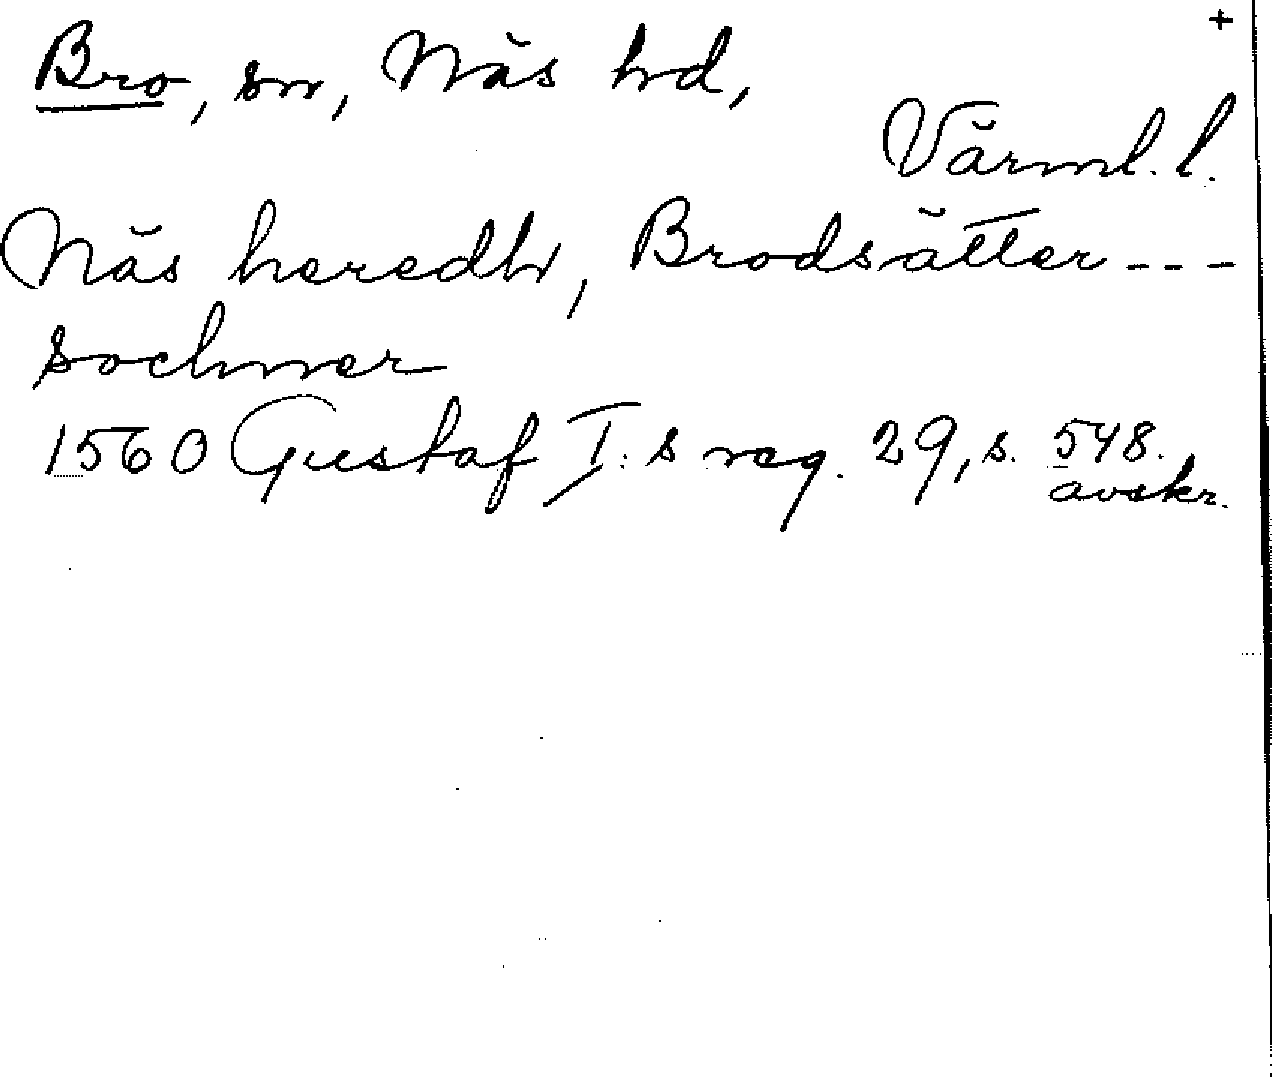 +
Bro, sn, Näs hd,
Värml. l.
Näs heredh, Brodsätter - - -
sochner
1560 Gustaf I:s reg. 29, s. 548.
avskr.